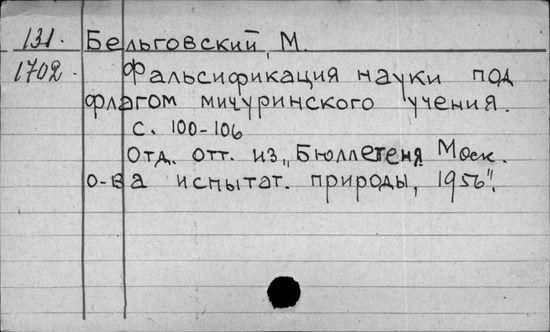 131. Бельговский, М.
1702. Фальсификация науки под
флагом мичуринского учения.
с. 100-106
Отд. отт. из „Бюллетеня Моск.
о-ва испытат. природы, 1956".